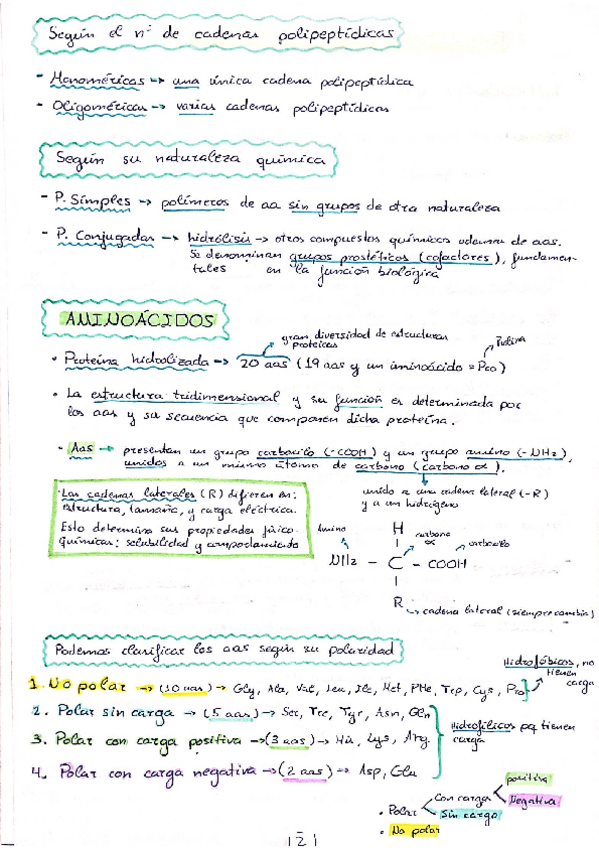 Según el nº de cadenas polipeptídicas
- Monoméricas → una única cadena polipeptídica
- Oligoméricas → varias cadenas polipeptídicas
Según su naturaleza química
- P. Simples → polímeros de aa sin grupos de otra naturaleza
- P. Conjugadas → hidrólisis → otros compuestos químicos además de aas.
Se denominan grupos prostéticos (cofactores), fundamen-
tales en la función biológica
AMINOÁCIDOS
gran diversidad de estructuras
proteicas
Prolina
• Proteína hidrolizada → 20 aas (19 aas y un iminoácido = Pro)
• La estructura tridimensional y su función es determinada por
los aas y su secuencia que componen dicha proteína.
• Aas → presentan un grupo carboxilo (-COOH) y un grupo amino (-NH2),
unidos a un mismo átomo de carbono (carbono α).
unido a una cadena lateral (-R)
y a un hidrógeno
• Las cadenas laterales (R) difieren en:
estructura, tamaño, y carga eléctrica.
Esto determina sus propiedades físico-
químicas: solubilidad y comportamiento
Amino
H
carbono
α
carboxilo
NH2 - C - COOH
R
→ cadena lateral (siempre cambia)
Podemos clasificar los aas según su polaridad
Hidrofóbicos, no
tienen
carga
1. No polar → (10 aas) → Gly, Ala, Val, Leu, Ile, Met, PHe, Trp, Cys, Pro
2. Polar sin carga → (5 aas) → Ser, Tre, Tyr, Asn, Gln
Hidrofílicos pq tienen
carga
3. Polar con carga positiva → (3 aas) → His, Lys, Arg.
4. Polar con carga negativa → (2 aas) → Asp, Glu
• Polar
Con carga
positiva
Negativa
Sin carga
• No polar
121